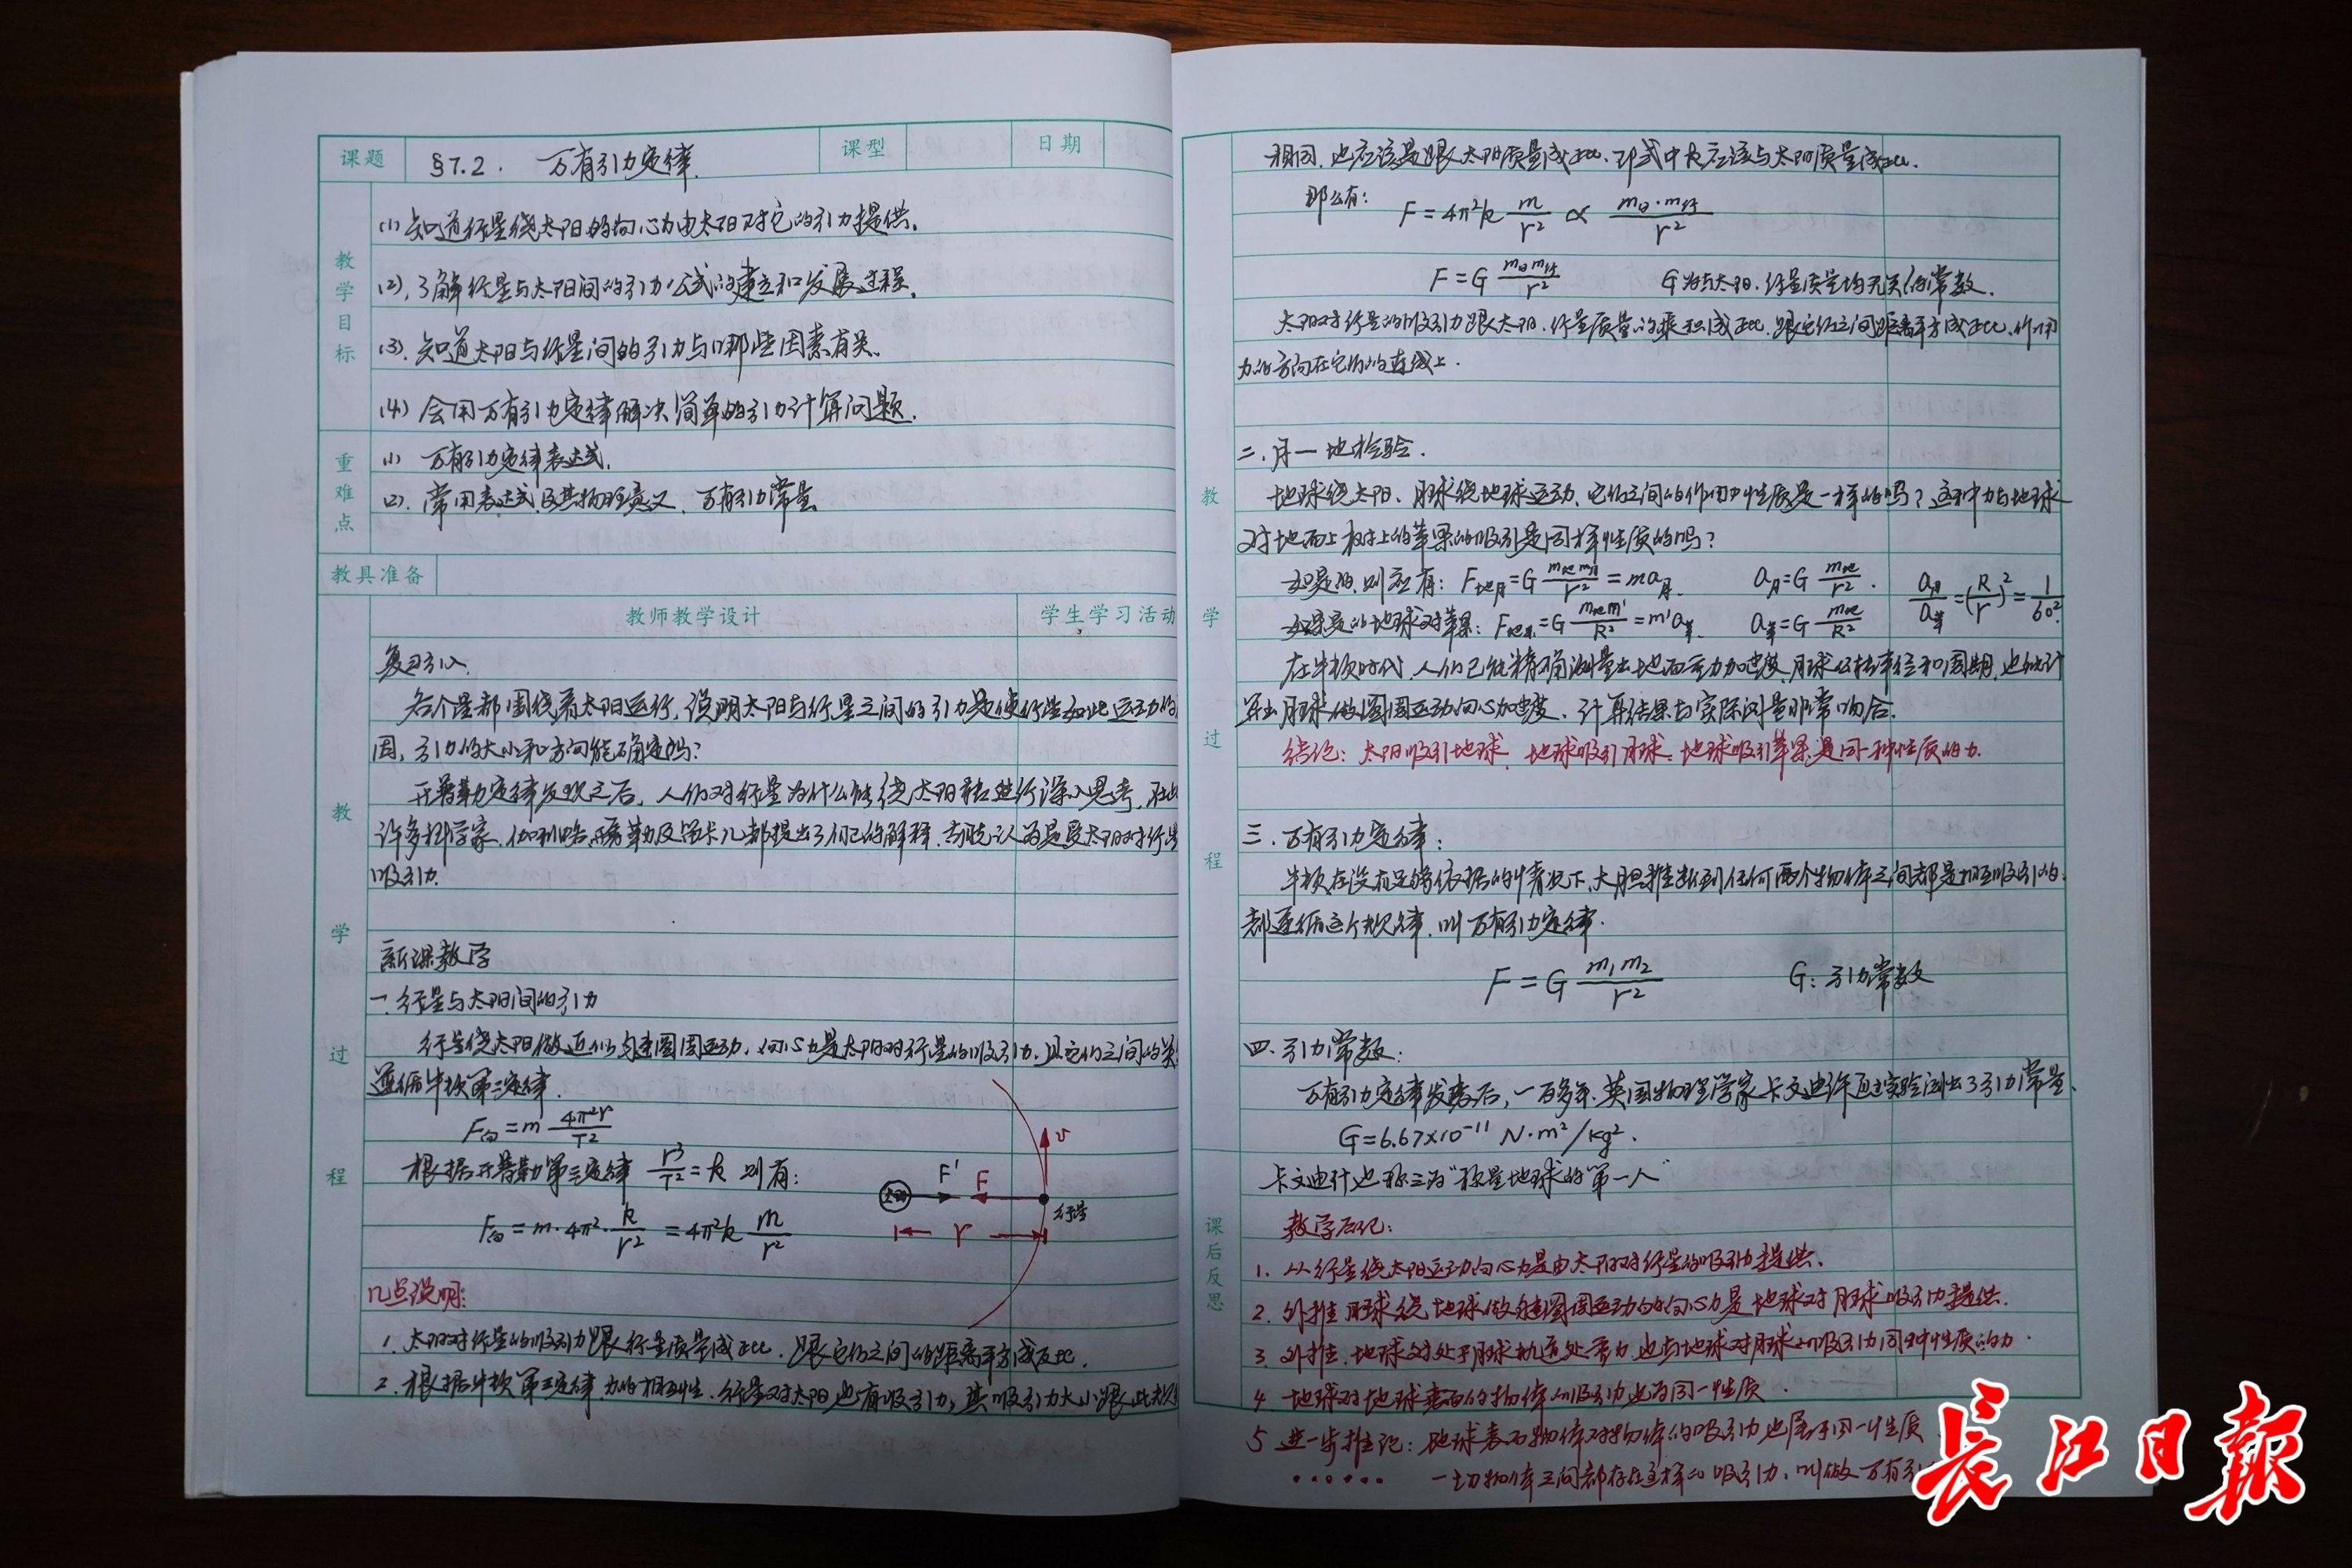 课题 §7.2. 万有引力定律. 课型 日期
教学目标
(1) 知道行星绕太阳的向心力由太阳对它的引力提供.
(2). 了解行星与太阳间的引力公式的建立和发展过程.
(3). 知道太阳与行星间的引力与哪些因素有关.
(4) 会用万有引力定律解决简单的引力计算问题.
重难点
(1) 万有引力定律表达式.
(2). 常用表达式及其物理意义. 万有引力常量
教具准备
教师教学设计 学生学习活动
教学过程
复习引入.
各个星都围绕着太阳运行, 说明太阳与行星之间的引力是使行星如此运动的
因, 引力的大小和方向能确定吗?
开普勒定律发现之后, 人们对行星为什么能绕太阳 进行深入思考.
许多科学家. 伽利略. 开普勒及笛卡儿都提出了自己的解释. 认为是受太阳对行
吸引力.
新课教学
一. 行星与太阳间的引力
行星绕太阳做近似匀速圆周运动. 向心力是太阳对行星的吸引力. 且它们之间的关
遵循牛顿第三定律.
F向 = m 4π²r/T²
根据开普勒第三定律 r³/T² = k 则有:
F向 = m·4π²·k/r² = 4π²k m/r²
太阳 F' F v 行星
r
几点说明:
1. 太阳对行星的吸引力跟行星质量成正比. 跟它们之间的距离平方成反比.
2. 根据牛顿第三定律. 力的相互性. 行星对太阳也有吸引力, 其吸引力大小跟此
相同. 也应该是跟太阳质量成正比. 即式中k应该与太阳质量成正比.
那么有: F = 4π²k m/r² ∝ m日·m行/r²
F = G m日m行/r² G为与太阳. 行星质量均无关的常数.
太阳对行星的吸引力跟太阳. 行星质量的乘积成正比. 跟它们之间距离平方成正比. 作用
力的方向在它们的连线上.
二. 月一地检验.
教学过程
地球绕太阳、月球绕地球运动. 它们之间的作用力性质是一样的吗? 这种力与地球
对地面上树上的苹果的吸引是同样性质的吗?
如是的. 则应有: F地月 = G m地m月/r² = ma月. a月 = G m地/r². a月/a苹 = (R/r)² = 1/60².
如果是的地球对苹果: F地苹 = G m地m'/R² = m'a苹. a苹 = G m地/R²
在牛顿时代. 人们已能精确测量出地面重力加速度. 月球公转半径和周期. 也能计
算出月球做圆周运动向心加速度. 计算结果与实际测量非常吻合.
结论: 太阳吸引地球. 地球吸引月球. 地球吸引苹果. 是同一种性质的力.
三. 万有引力定律:
牛顿在没有足够依据的情况下, 大胆推断到任何两个物体之间都是相互吸引的.
都遵循这个规律. 叫万有引力定律.
F = G m₁m₂/r² G: 引力常数
四. 引力常数:
万有引力定律发表后, 一百多年. 英国物理学家卡文迪许通过实验测出了引力常量.
G = 6.67×10⁻¹¹ N·m²/kg².
卡文迪许也称之为"称量地球的"第一人"
课后反思
教学后记:
1. 从行星绕太阳运动向心力是由太阳对行星的吸引力提供.
2. 外推. 月球绕地球做匀速圆周运动的向心力是地球对月球吸引力提供.
3. 外推. 地球对处于月球轨道处重力也与地球对月球的吸引力同种性质的力.
4 地球对地球表面的物体的吸引力也为同一性质.
5 进一步推论: 地球表面物体对物体的吸引力也属于同一性质.
...... 一切物体之间都存在这样的吸引力. 叫做万有引
长江日报